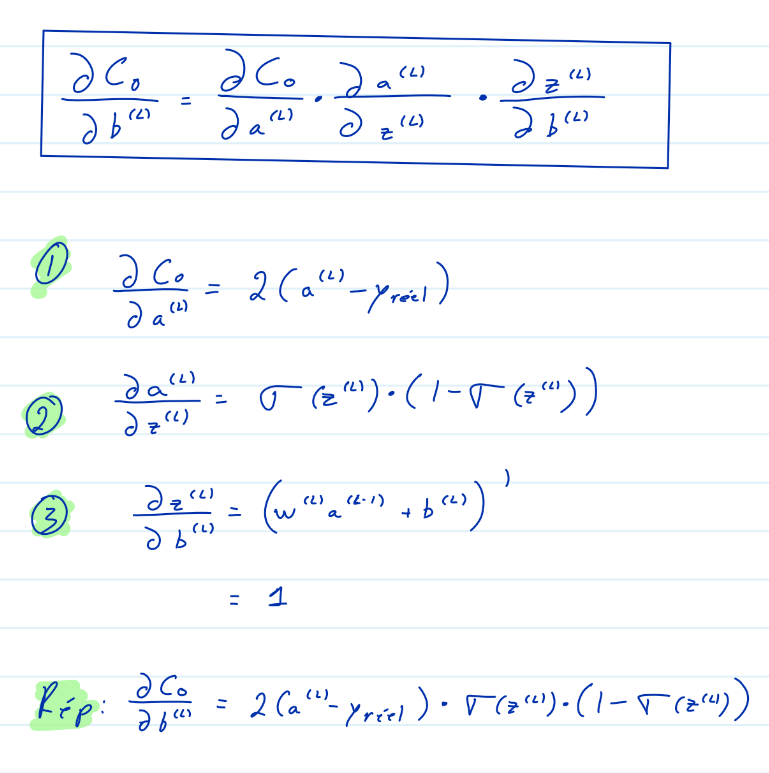 ∂C₀/∂b⁽ᴸ⁾ = ∂C₀/∂a⁽ᴸ⁾ · ∂a⁽ᴸ⁾/∂z⁽ᴸ⁾ · ∂z⁽ᴸ⁾/∂b⁽ᴸ⁾
① ∂C₀/∂a⁽ᴸ⁾ = 2(a⁽ᴸ⁾ - y_réel)
② ∂a⁽ᴸ⁾/∂z⁽ᴸ⁾ = σ(z⁽ᴸ⁾)·(1-σ(z⁽ᴸ⁾))
③ ∂z⁽ᴸ⁾/∂b⁽ᴸ⁾ = (w⁽ᴸ⁾a⁽ᴸ⁻¹⁾ + b⁽ᴸ⁾)'
= 1
Rép: ∂C₀/∂b⁽ᴸ⁾ = 2(a⁽ᴸ⁾ - y_réel) · σ(z⁽ᴸ⁾)·(1-σ(z⁽ᴸ⁾))